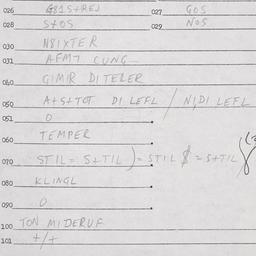 026 G81S+REJ 027 GOS
028 S+OS 029 NOS
030 N8IXTER
031 AFMT CUNG
040 GIMIR DITELER
050 A+S+TOT DI LEFL / NIDI LEFL
051 O
060 TEMPER
070 STIL = S+TIL ) = STIL $ = S+TIL
080 KLINGL
090 O
100 TON MIDERUF
101 +/+